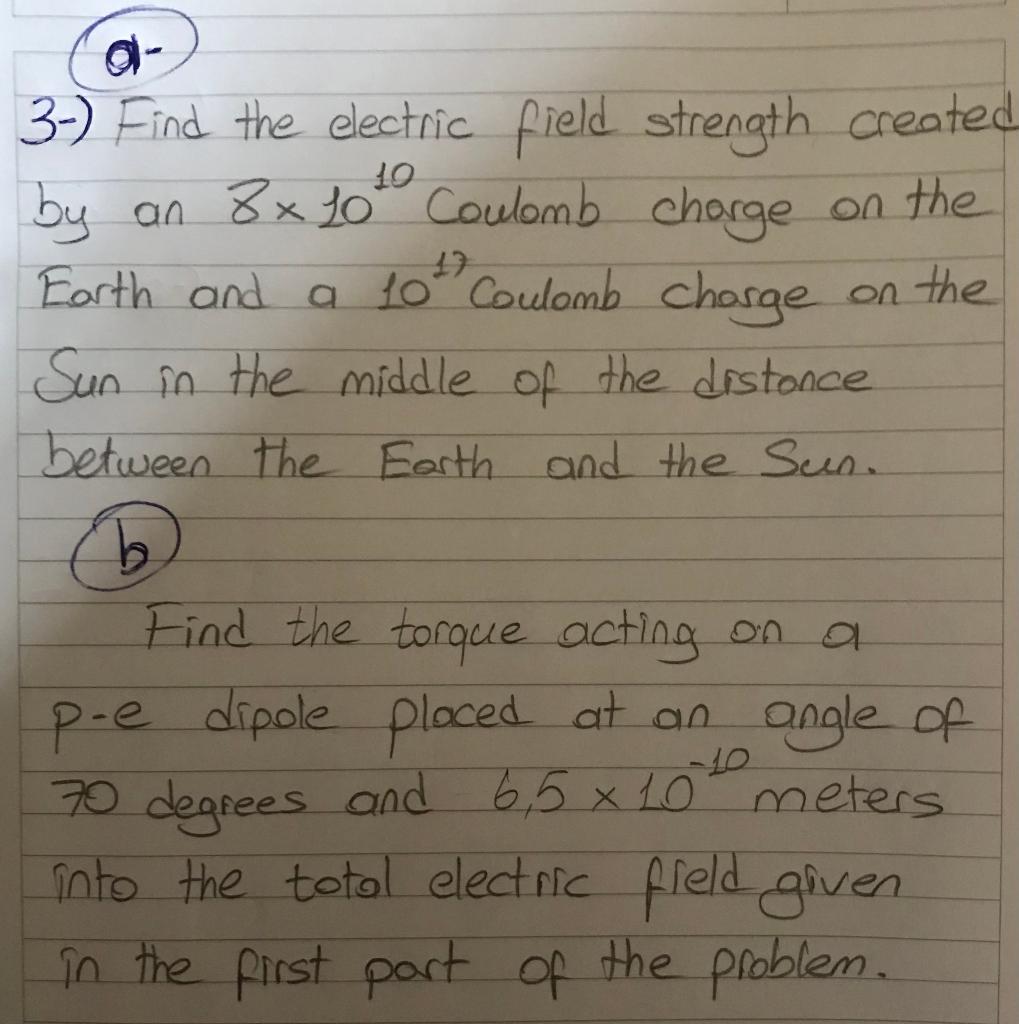 a-
3-) Find the electric field strength created
by an 8 x 10¹⁰ Coulomb charge on the
Earth and a 10¹⁷ Coulomb charge on the
Sun in the middle of the distance
between the Earth and the Sun.
b
Find the torque acting on a
p-e dipole placed at an angle of
70 degrees and 6,5 x 10⁻¹⁰ meters
into the total electric field given
in the first part of the problem.